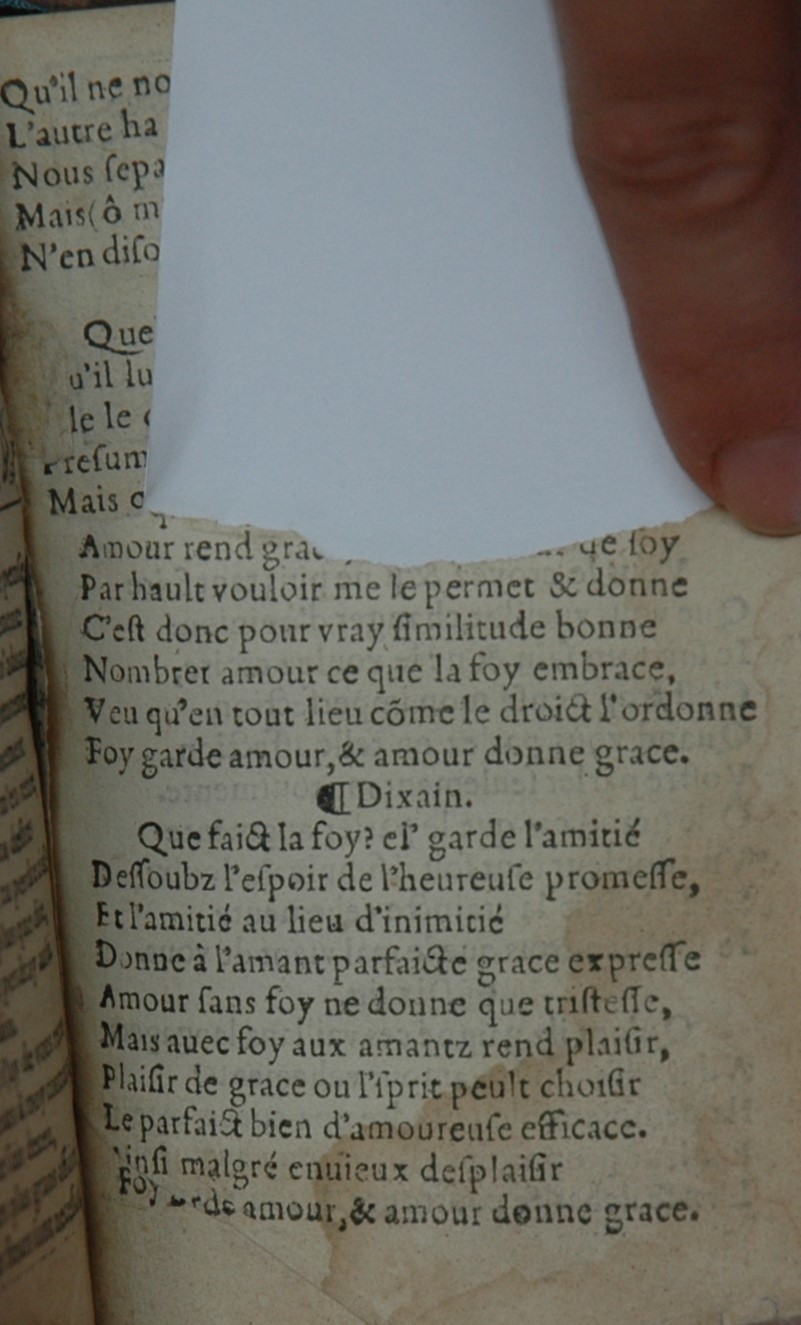 Qu'il ne
L'autre
Nous
Mais(ô
N'en
Que
Mais
Amour rend ſoy
Par hault vouloir me le permet & donne
C'eſt donc pour vray ſimilitude bonne
Nombrer amour ce que la foy embrace,
Veu qu'en tout lieu cõme le droict l'ordonne
Foy garde amour,& amour donne grace.
¶ Dixain.
Que faict la foy? el' garde l'amitié
Deſſoubz l'eſpoir de l'heureuſe promeſſe,
Et l'amitié au lieu d'inimitié
Donne à l'amant parfaicte grace expreſſe
Amour ſans foy ne donne que triſteſſe,
Mais auec foy aux amantz rend plaiſir,
Plaiſir de grace ou l'ſprit peult choiſir
Le parfaict bien d'amoureuſe efficace.
malgré enuieux deſplaiſir
Foy amour,& amour donne grace.